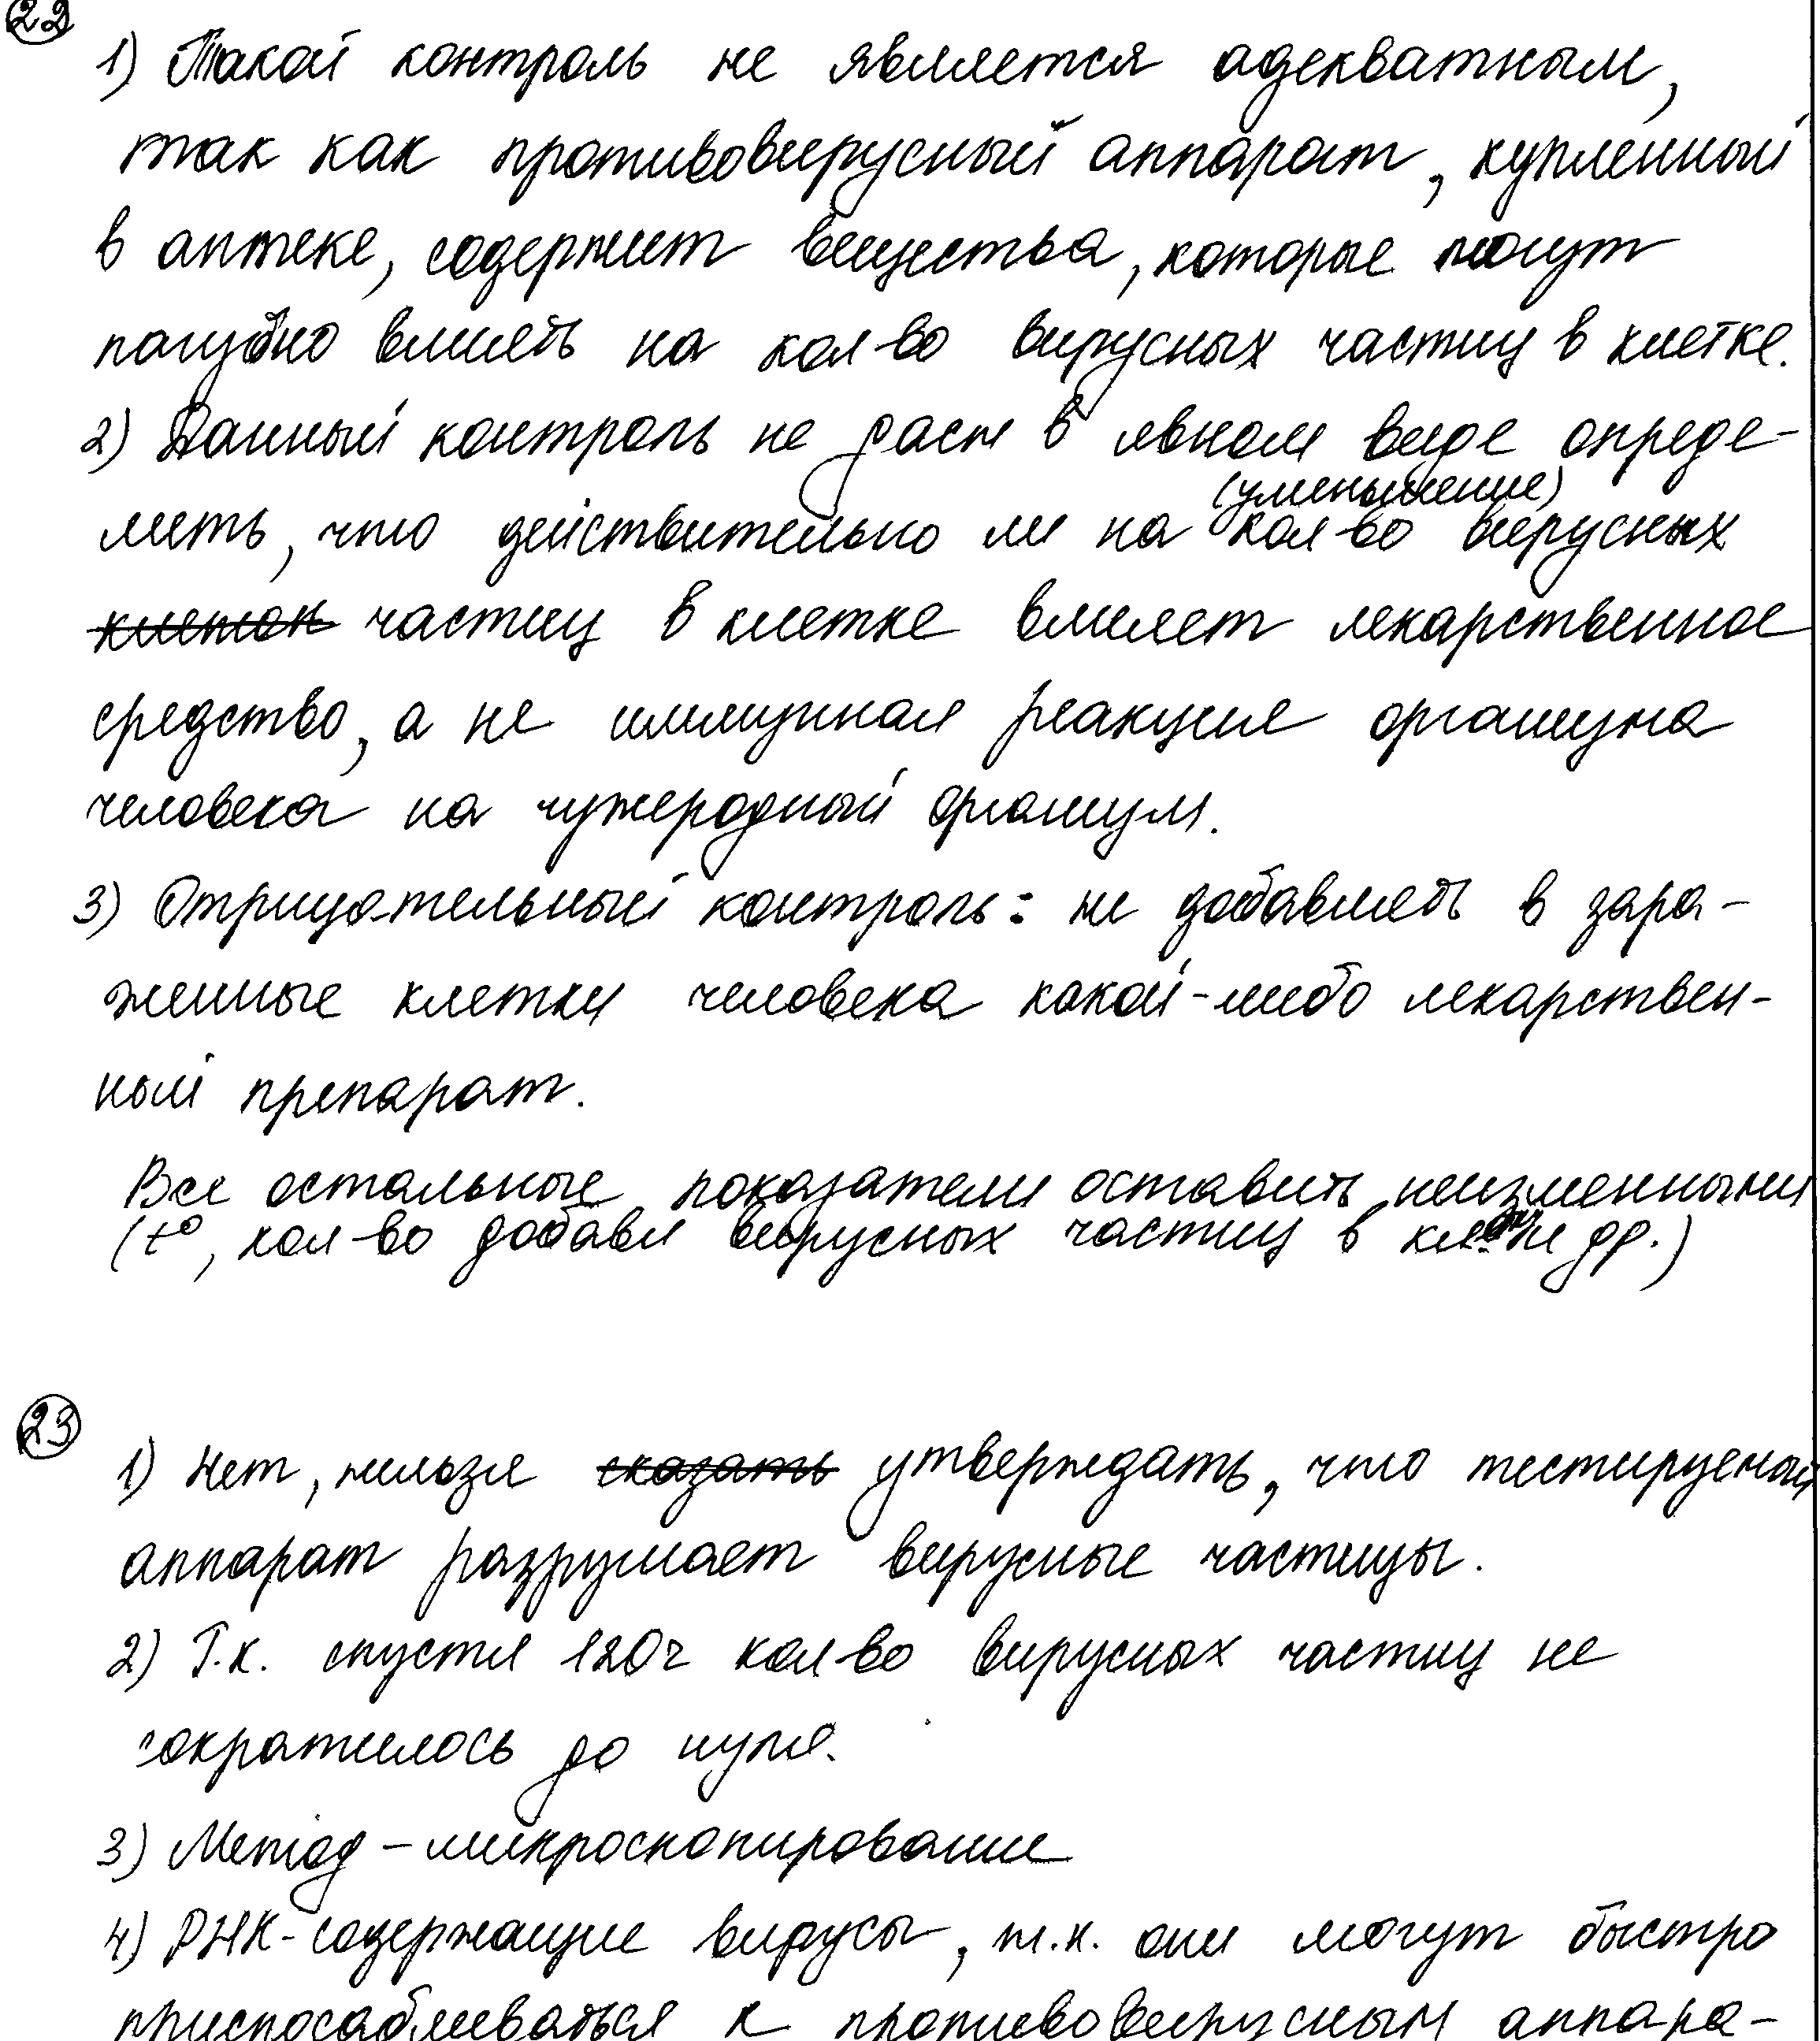 22
1) Такой контроль не является адекватным,
так как противовирусный аппарат, купленный
в аптеке, содержит вещества, которые могут
пагубно влиять на кол-во вирусных частиц в клетке.
2) Данный контроль не даст в явном виде опреде-
лить, что действительно ли на (уменьшение) кол-во вирусных
клеток частиц в клетке влияет лекарственное
средство, а не иммунная реакция организма
человека на чужеродный организм.
3) Отрицательный контроль: не добавлять в зара-
женные клетки человека какой-либо лекарствен-
ный препарат.
Все остальные показатели оставить неизменными
(t°, кол-во добавл вирусных частиц в и др.)
23
1) Нет, нельзя сказать утверждать, что тестируемый
аппарат разрушает вирусные частицы.
2) Т.к. спустя 120ч кол-во вирусных частиц не
сократилось до нуля.
3) Метод - микроскопирование
4) РНК-содержащие вирусы, т.к. они могут быстро
приспосабливаться к противовирусным аппара-